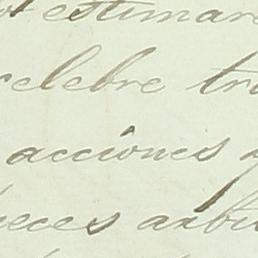 estimar
celebre tra
acciones
veces arbi